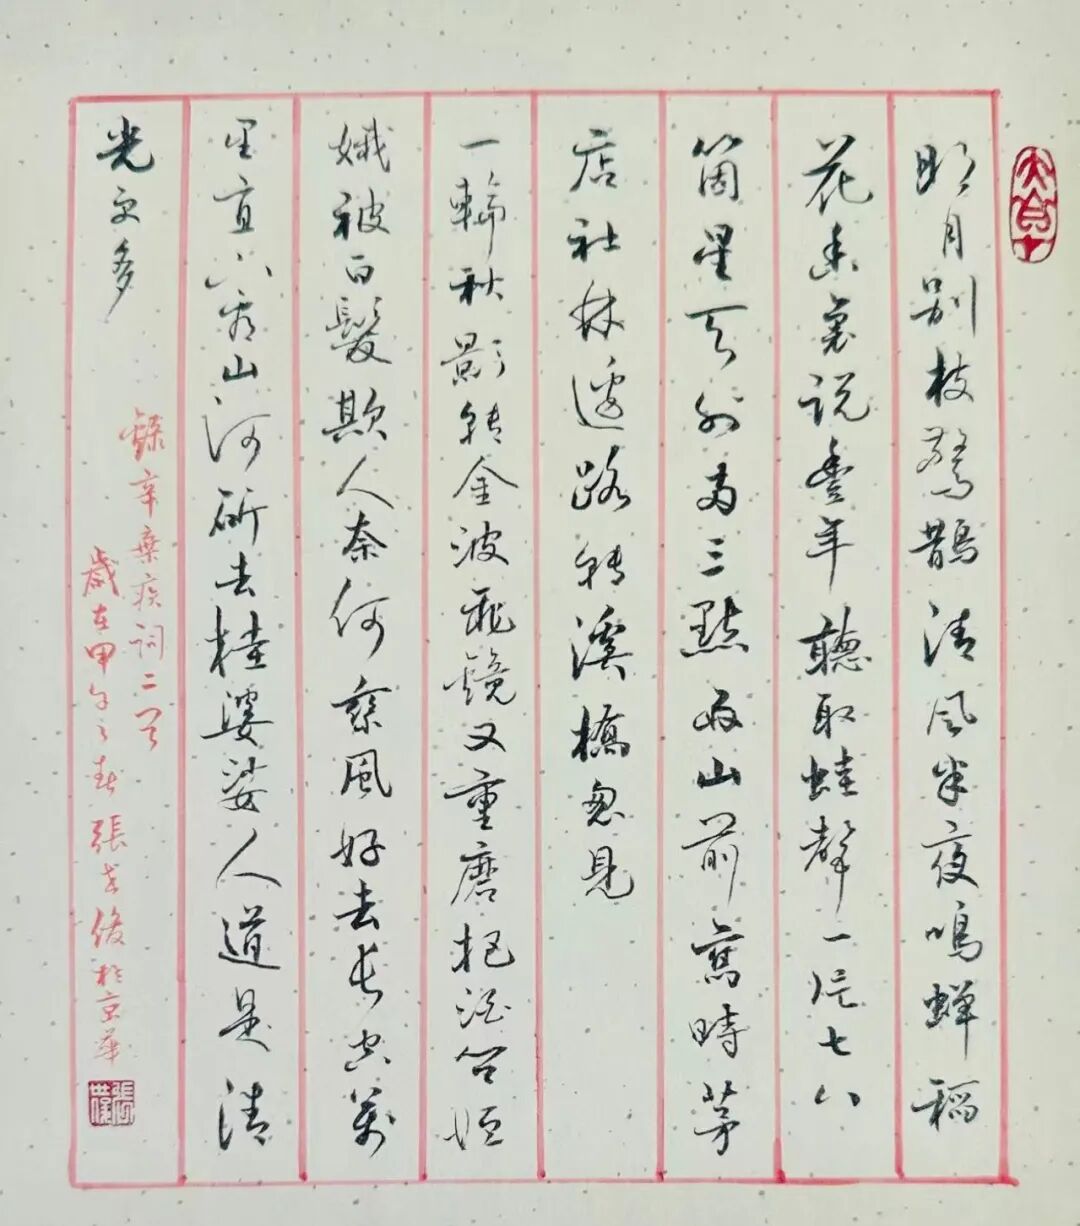 明月別枝驚鵲清風半夜鳴蟬稻
花香裏說豐年聽取蛙聲一片七八
箇星天外兩三點雨山前舊時茅
店社林邊路轉溪橋忽見
一輪秋影轉金波飛鏡又重磨把酒問姮
娥被白髮欺人奈何乘風好去長空萬
里直下看山河斫去桂婆娑人道是清
光更多
錄辛棄疾詞二首
歲在甲午之春張世俊於京華